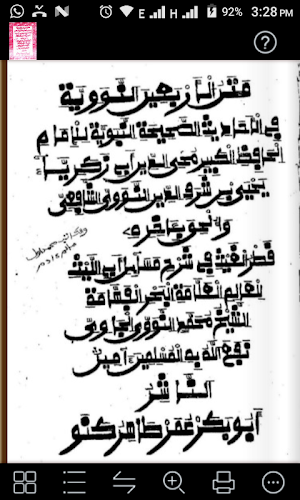 E H 92% 3:28 PM
متن الأربعين النووية
في الأحاديث الصحيحة النبوية للإمام
الحافظ الكبير محي الدين أبي زكرياء
يحيى بن شرف الدين النووي الشافعي
قطر الغيث في شرح مسائل أبي الليث
للعالم العلامة البحر الفهامة
الشيخ محمد النووي الجاوي
نفع الله به المسلمين آمين
الناشر
أبوبكر عمر طاهر كنو